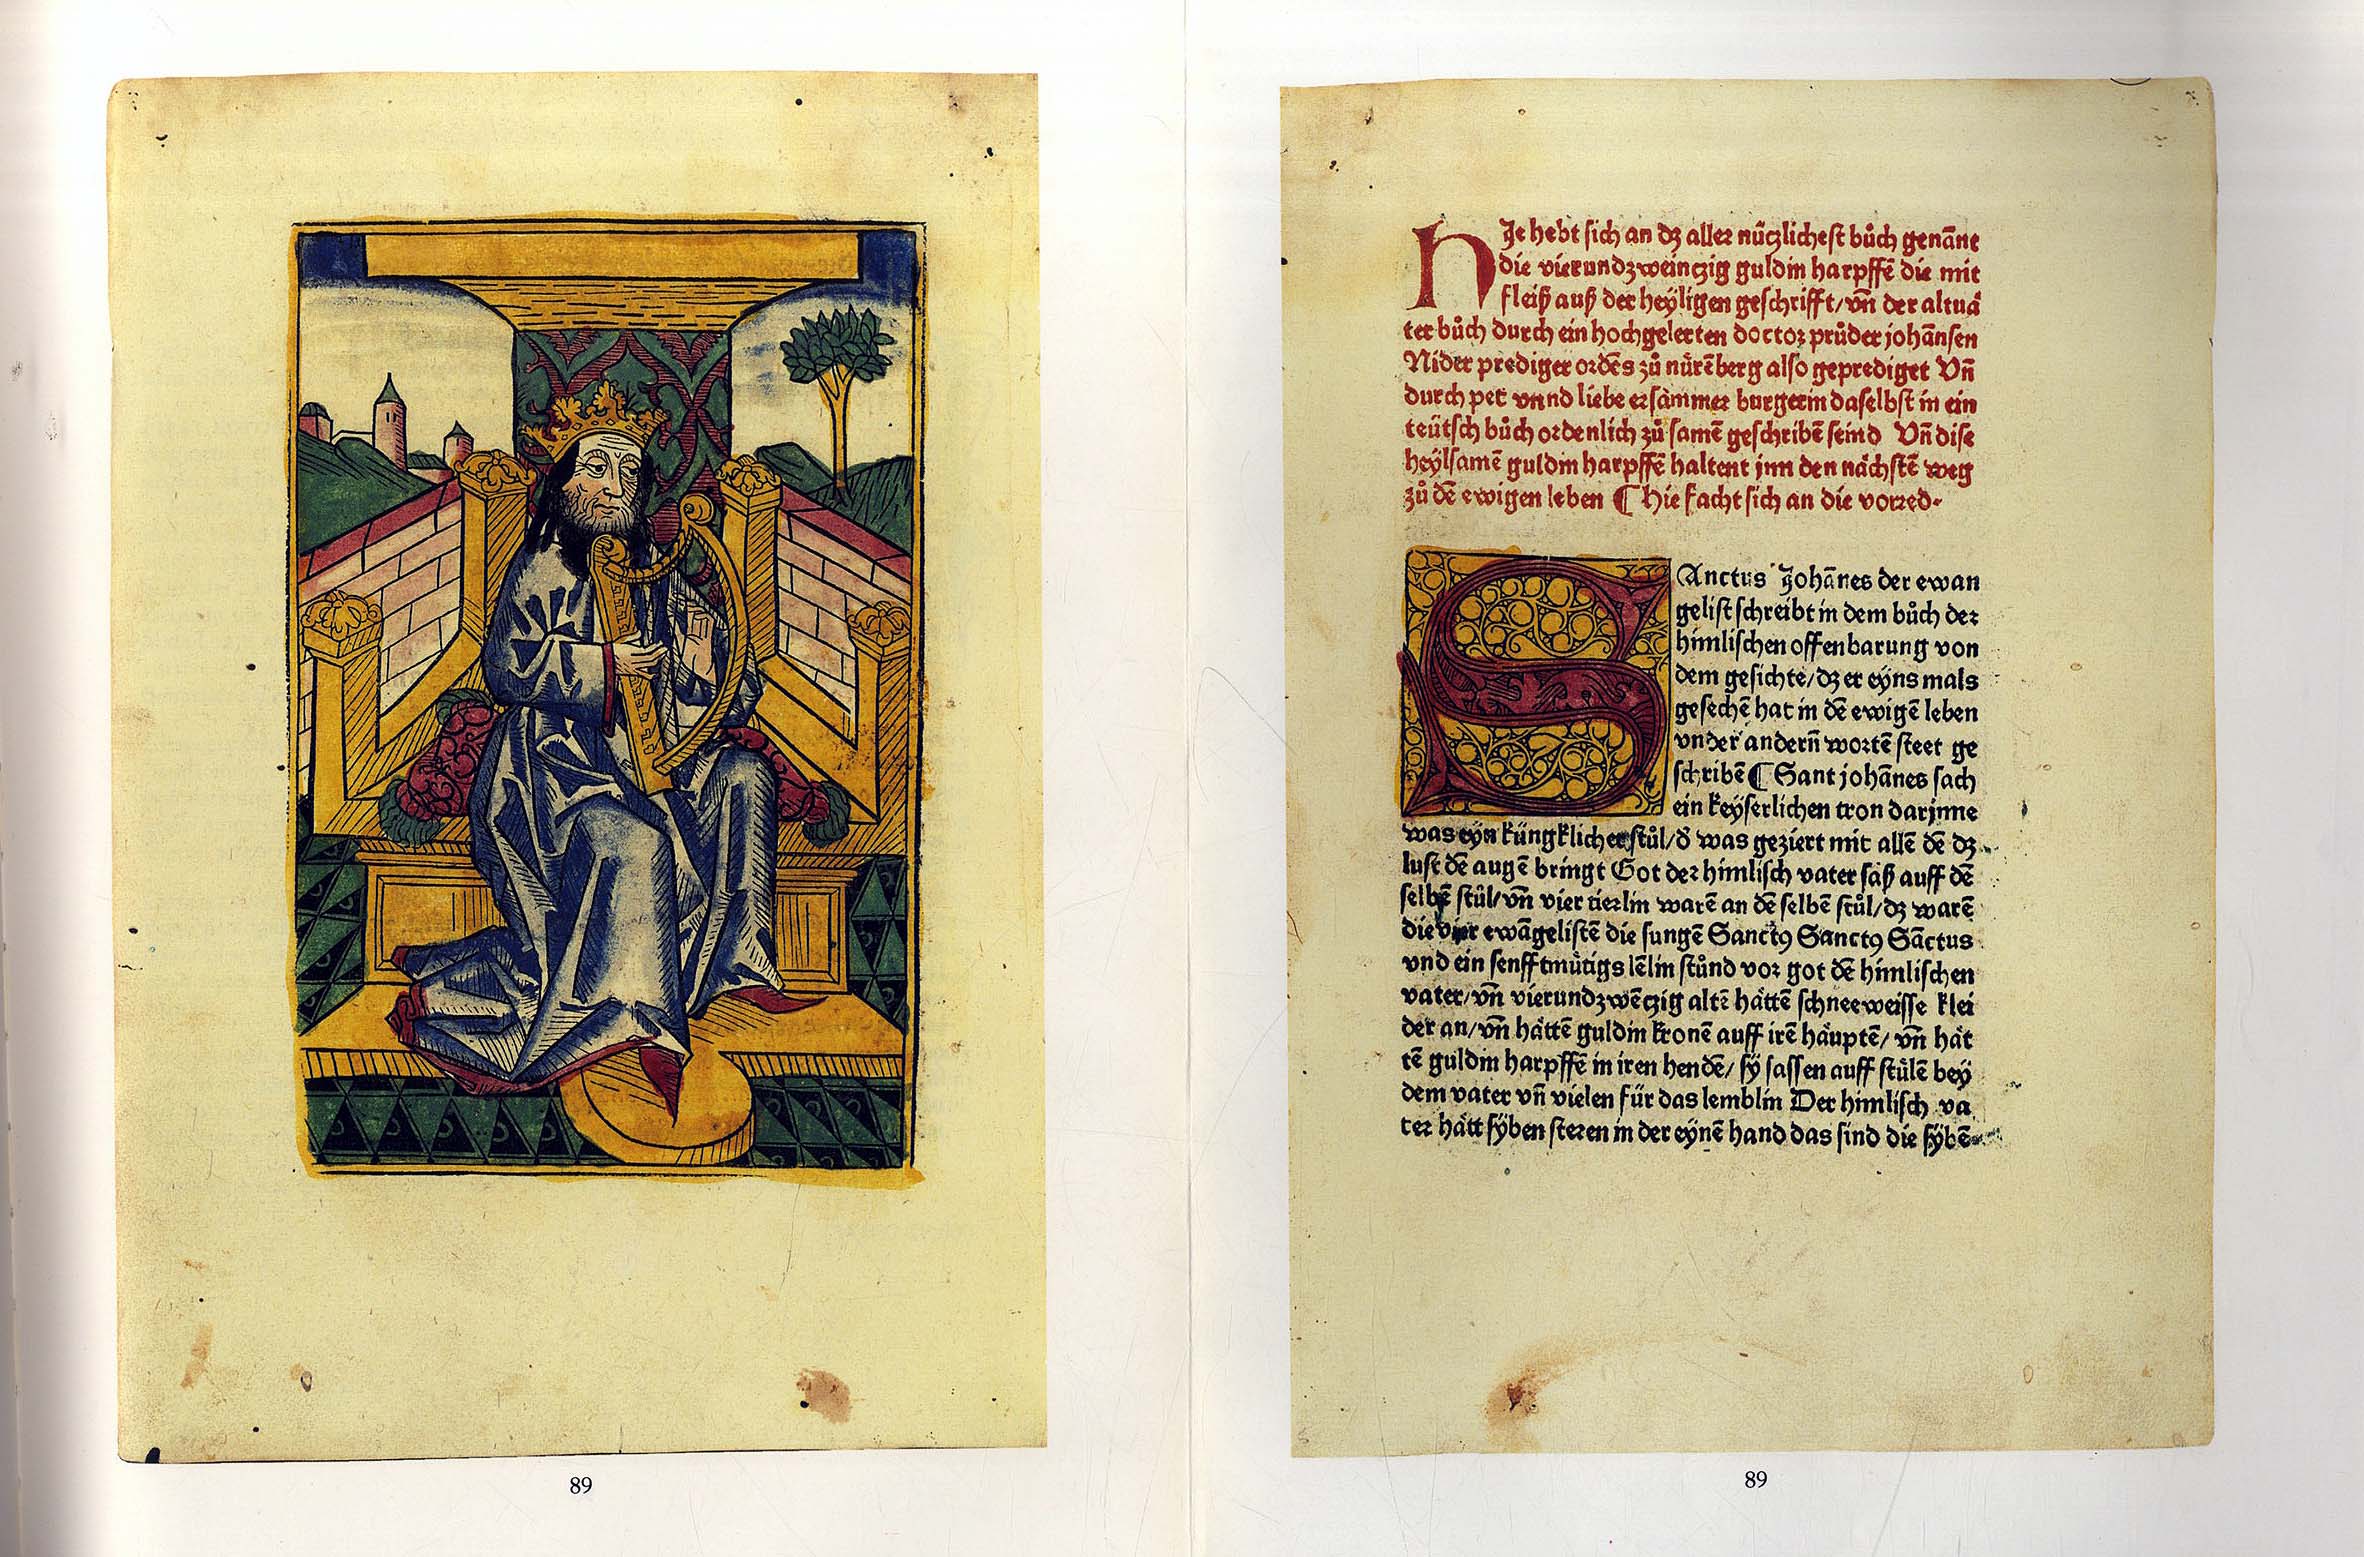 89
HJe hebt sich an dz aller nüczlichest bůch genānt
die vierundzweinczig guldin harpffē die mit
fleiß auß der heÿligen geschrifft/vn̄ der altuä
ter bůch durch ein hochgelerten doctor průder johānsen
Nider prediger ordēs zů nürēberg also geprediget Vn̄
durch pet vnnd liebe ersāmmer burgerin daselbst in ein
teütsch bůch ordenlich zů samē geschribē seind Vn̄ dise
heÿlsamē guldin harpffē haltent jnn den nächstē weg
zů dē ewigen leben ¶ Hie facht sich an die vorred·
SAnctus Johānes der ewan
gelist schreibt in dem bůch der
himlischen offenbarung von
dem gesichte/dz er eÿns mals
gesechē hat in dē ewigē leben
vnder andern̄ wortē steet ge
schribē ¶ Sant johānes sach
ein keÿserlichen tron darjnne
was eÿn küngklicher stůl/d̄ was geziert mit allē dē dz
lust dē augē bringt Got der himlisch vater saß auff dē
selbē stůl/vn̄ vier tierlin warē an dē selbē stůl/dz warē
die vier ewāgelistē die sungē Sanctꝰ Sanctꝰ Sāctus
vnd ein senfftmütigs lēlin stůnd vor got dē himlischen
vater/vn̄ vierundzwēczig altē hättē schneeweisse klei
der an/vn̄ hättē guldin kronē auff irē häuptē/vn̄ hät
tē guldin harpffē in iren hendē/sÿ sassen auff stülē beÿ
dem vater vn̄ vielen für das lemblin Der himlisch va
ter hätt sÿben steren in der eÿnē hand das sind die sÿbē
89